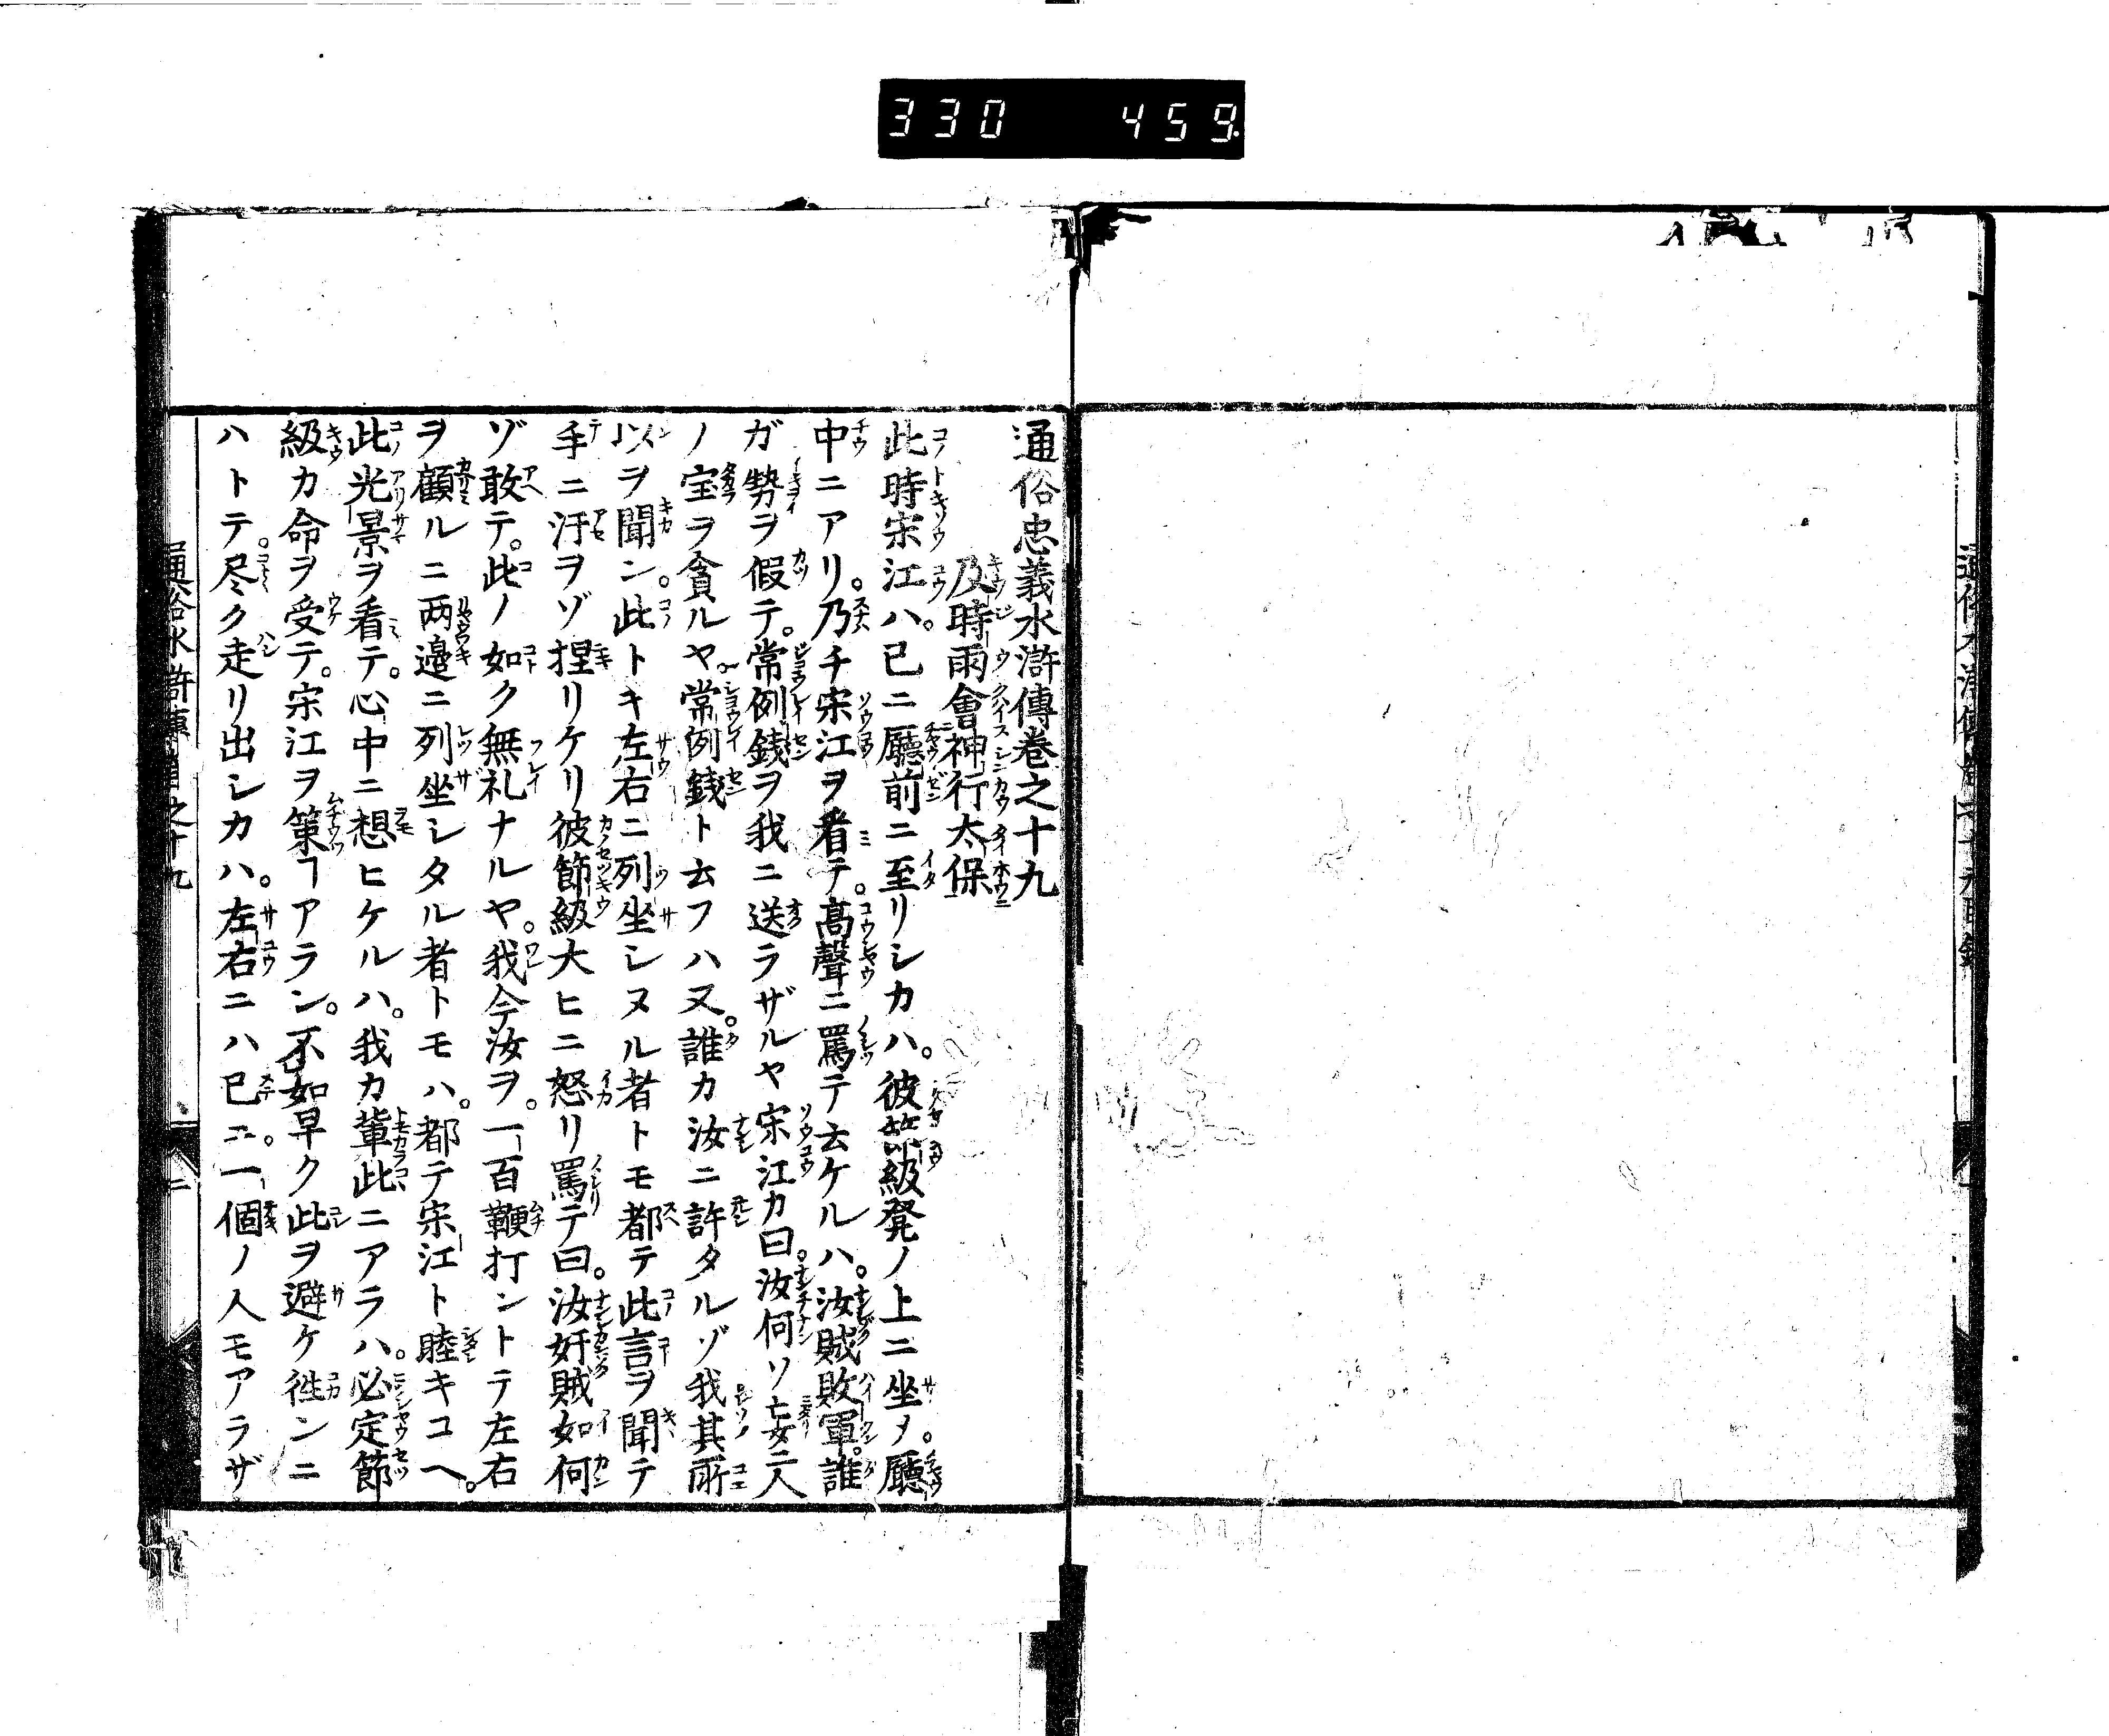 330 459
通俗忠義水滸傳巻之十九
及時雨會神行太保
此時宋江ハ。已ニ廳前ニ至リシカハ。彼節級発ノ上ニ坐メ。廳
中ニアリ。乃チ宋江ヲ看テ。高聲ニ罵テ云ケルハ。汝賊敗軍。誰
ガ勢ヲ假テ。常例銭ヲ我ニ送ラザルヤ宋江カ曰。汝何ソ妄ニ人
ノ宝ヲ貪ルヤ。常例銭ト云フハ又。誰カ汝ニ許タルゾ我其所
以ヲ聞ン。此トキ左右ニ列坐シヌル者トモ都テ此言ヲ聞テ
手ニ汗ヲゾ捏リケリ彼節級大ヒニ怒リ罵テ曰。汝奸賊如何
ゾ敢テ。此ノ如ク無礼ナルヤ。我今汝ヲ。一百鞭打ントテ左右
ヲ顧ルニ両邉ニ列坐シタル者トモハ。都テ宋江ト睦キコヘ。
此光景ヲ看テ。心中ニ想ヒケルハ。我カ輩此ニアラハ。必定節
級カ命ヲ受テ。宋江ヲ策ヿアラン。不如早ク此ヲ避ケ徃ンニ
ハトテ。尽ク走リ出シカハ。左右ニハ已ニ。一個ノ人モアラザ
通俗水滸傳 之十九 二